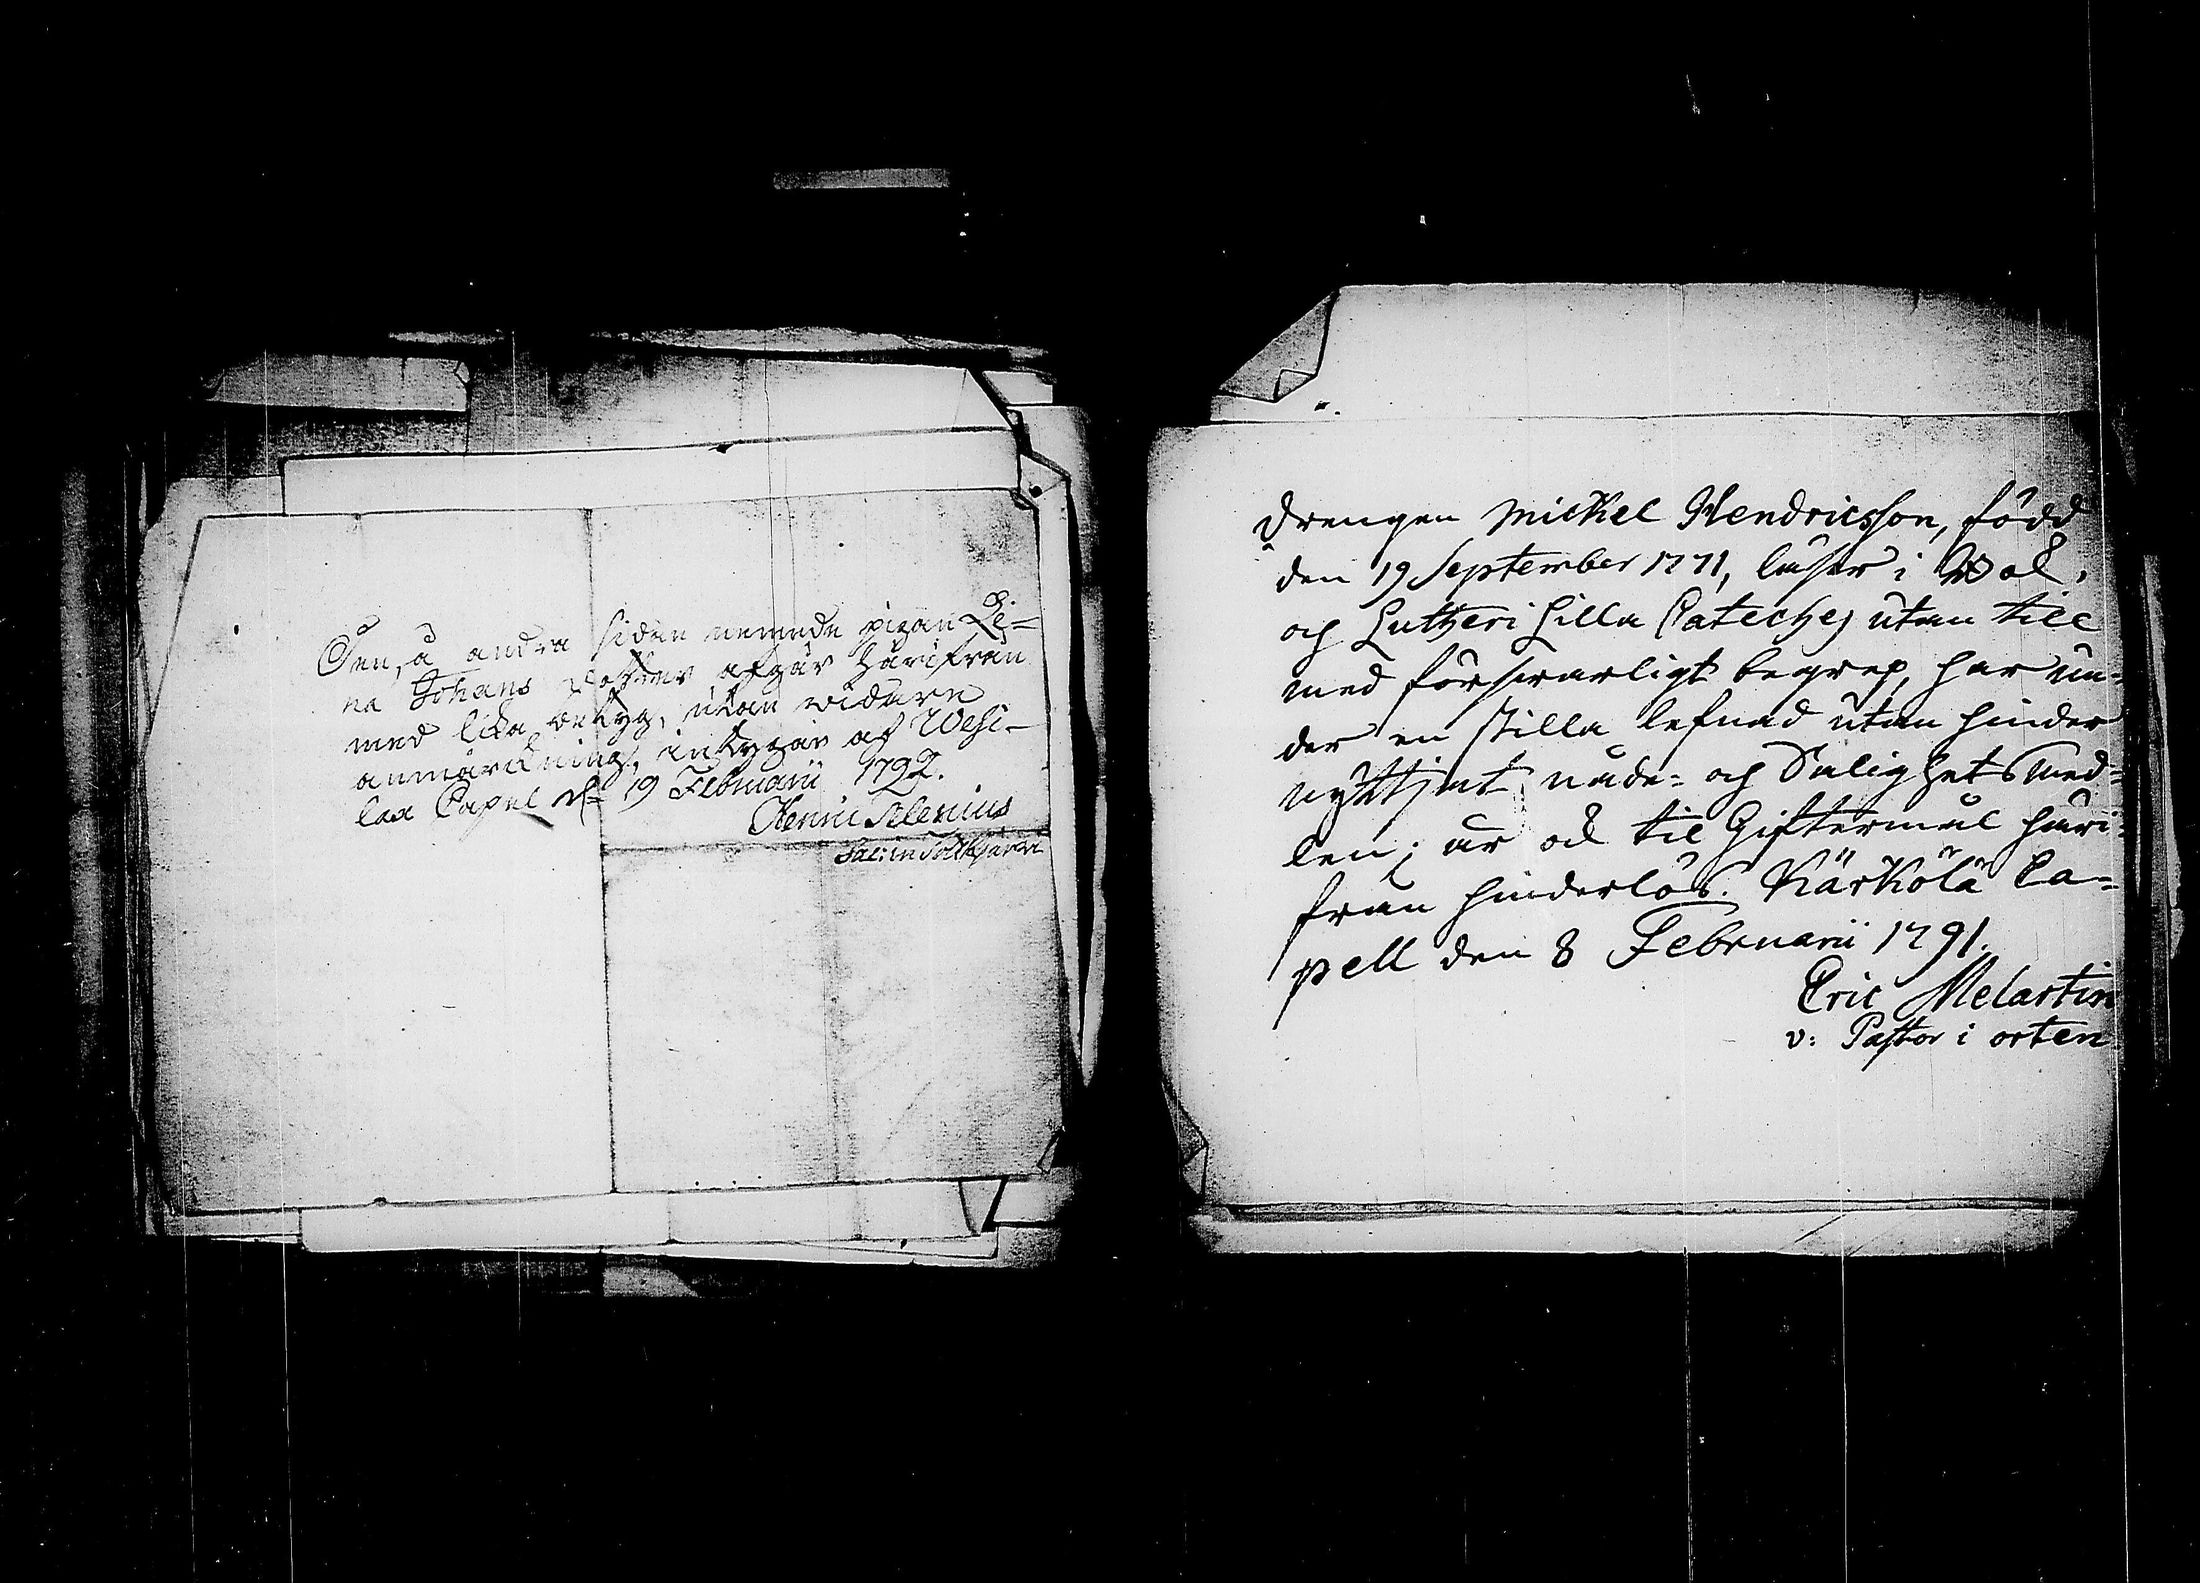 Den, å andra sidan nemnde pigan Li-
na Johans dotter afgår härifrån
med lika betyg, utan vidare
anmärkning, intygar af Wesi-
lax Capel d. 19 Februarii 1792.
Henric Alenius
Sac: in
Drengen Mickel Hendricsson, född
den 19 September 1771, läser i Bok.
och Lutheri Lilla Cateches utan till
med försvarligt begrep, har un-
der en stilla lefnad utan hinder
nyttjat nåde- och Salighets med-
len; är ock til Giftermål häri-
från hinderlös. Kärkölä Ca-
pell den 8 Februarii 1791.
Eric Melartin
v: Pastor i orten